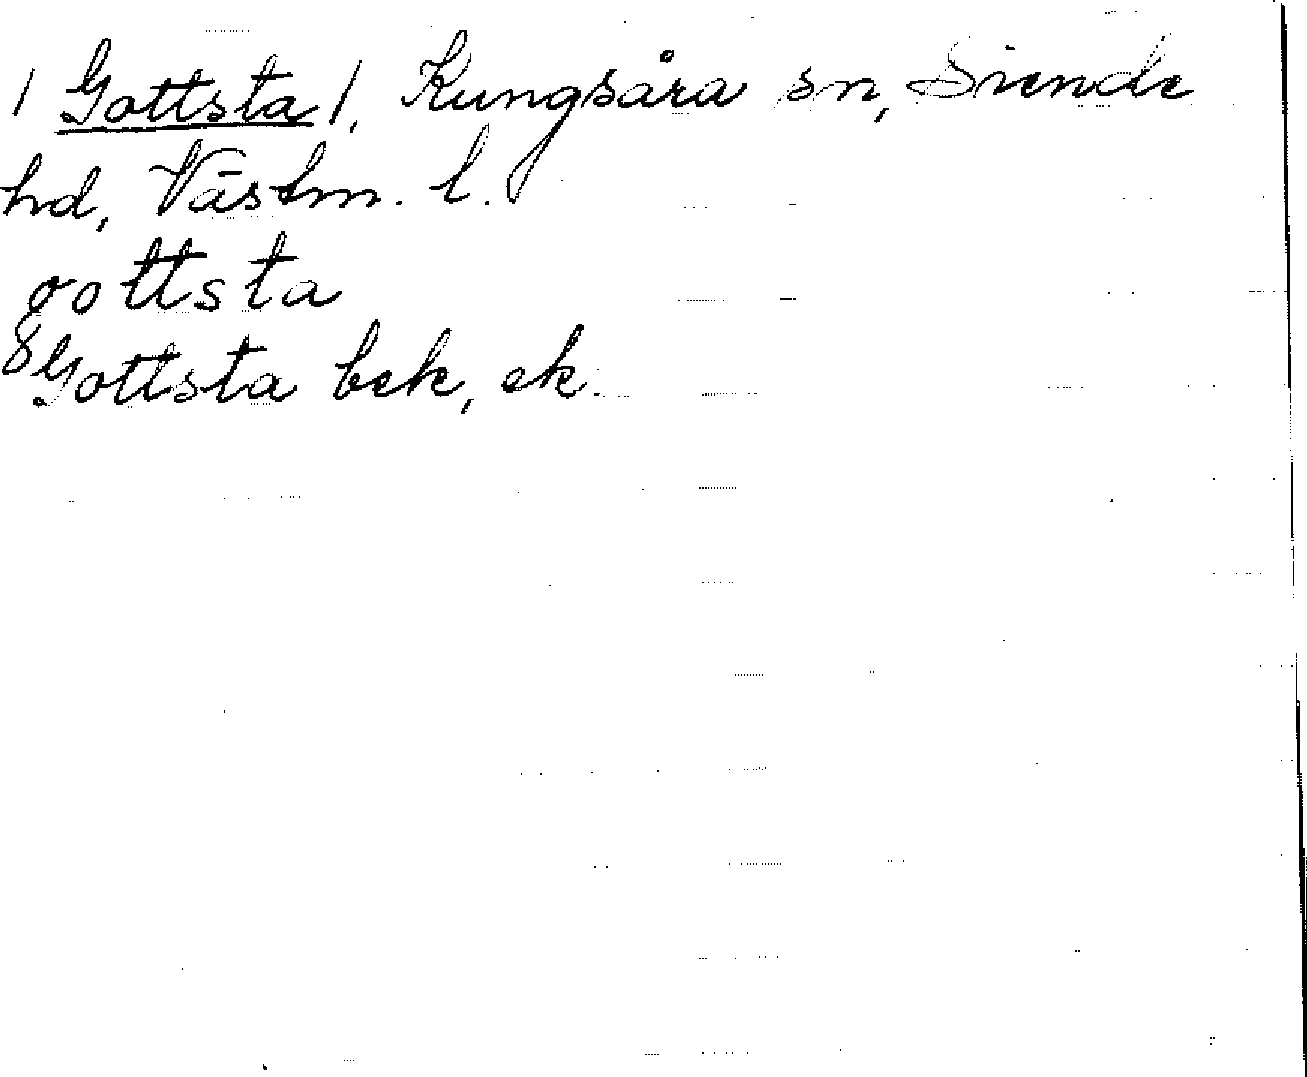 / Gottsta /, Kungsåra sn, Siende
hd, Västm. l.
gottsta
Gottsta bek, ek.